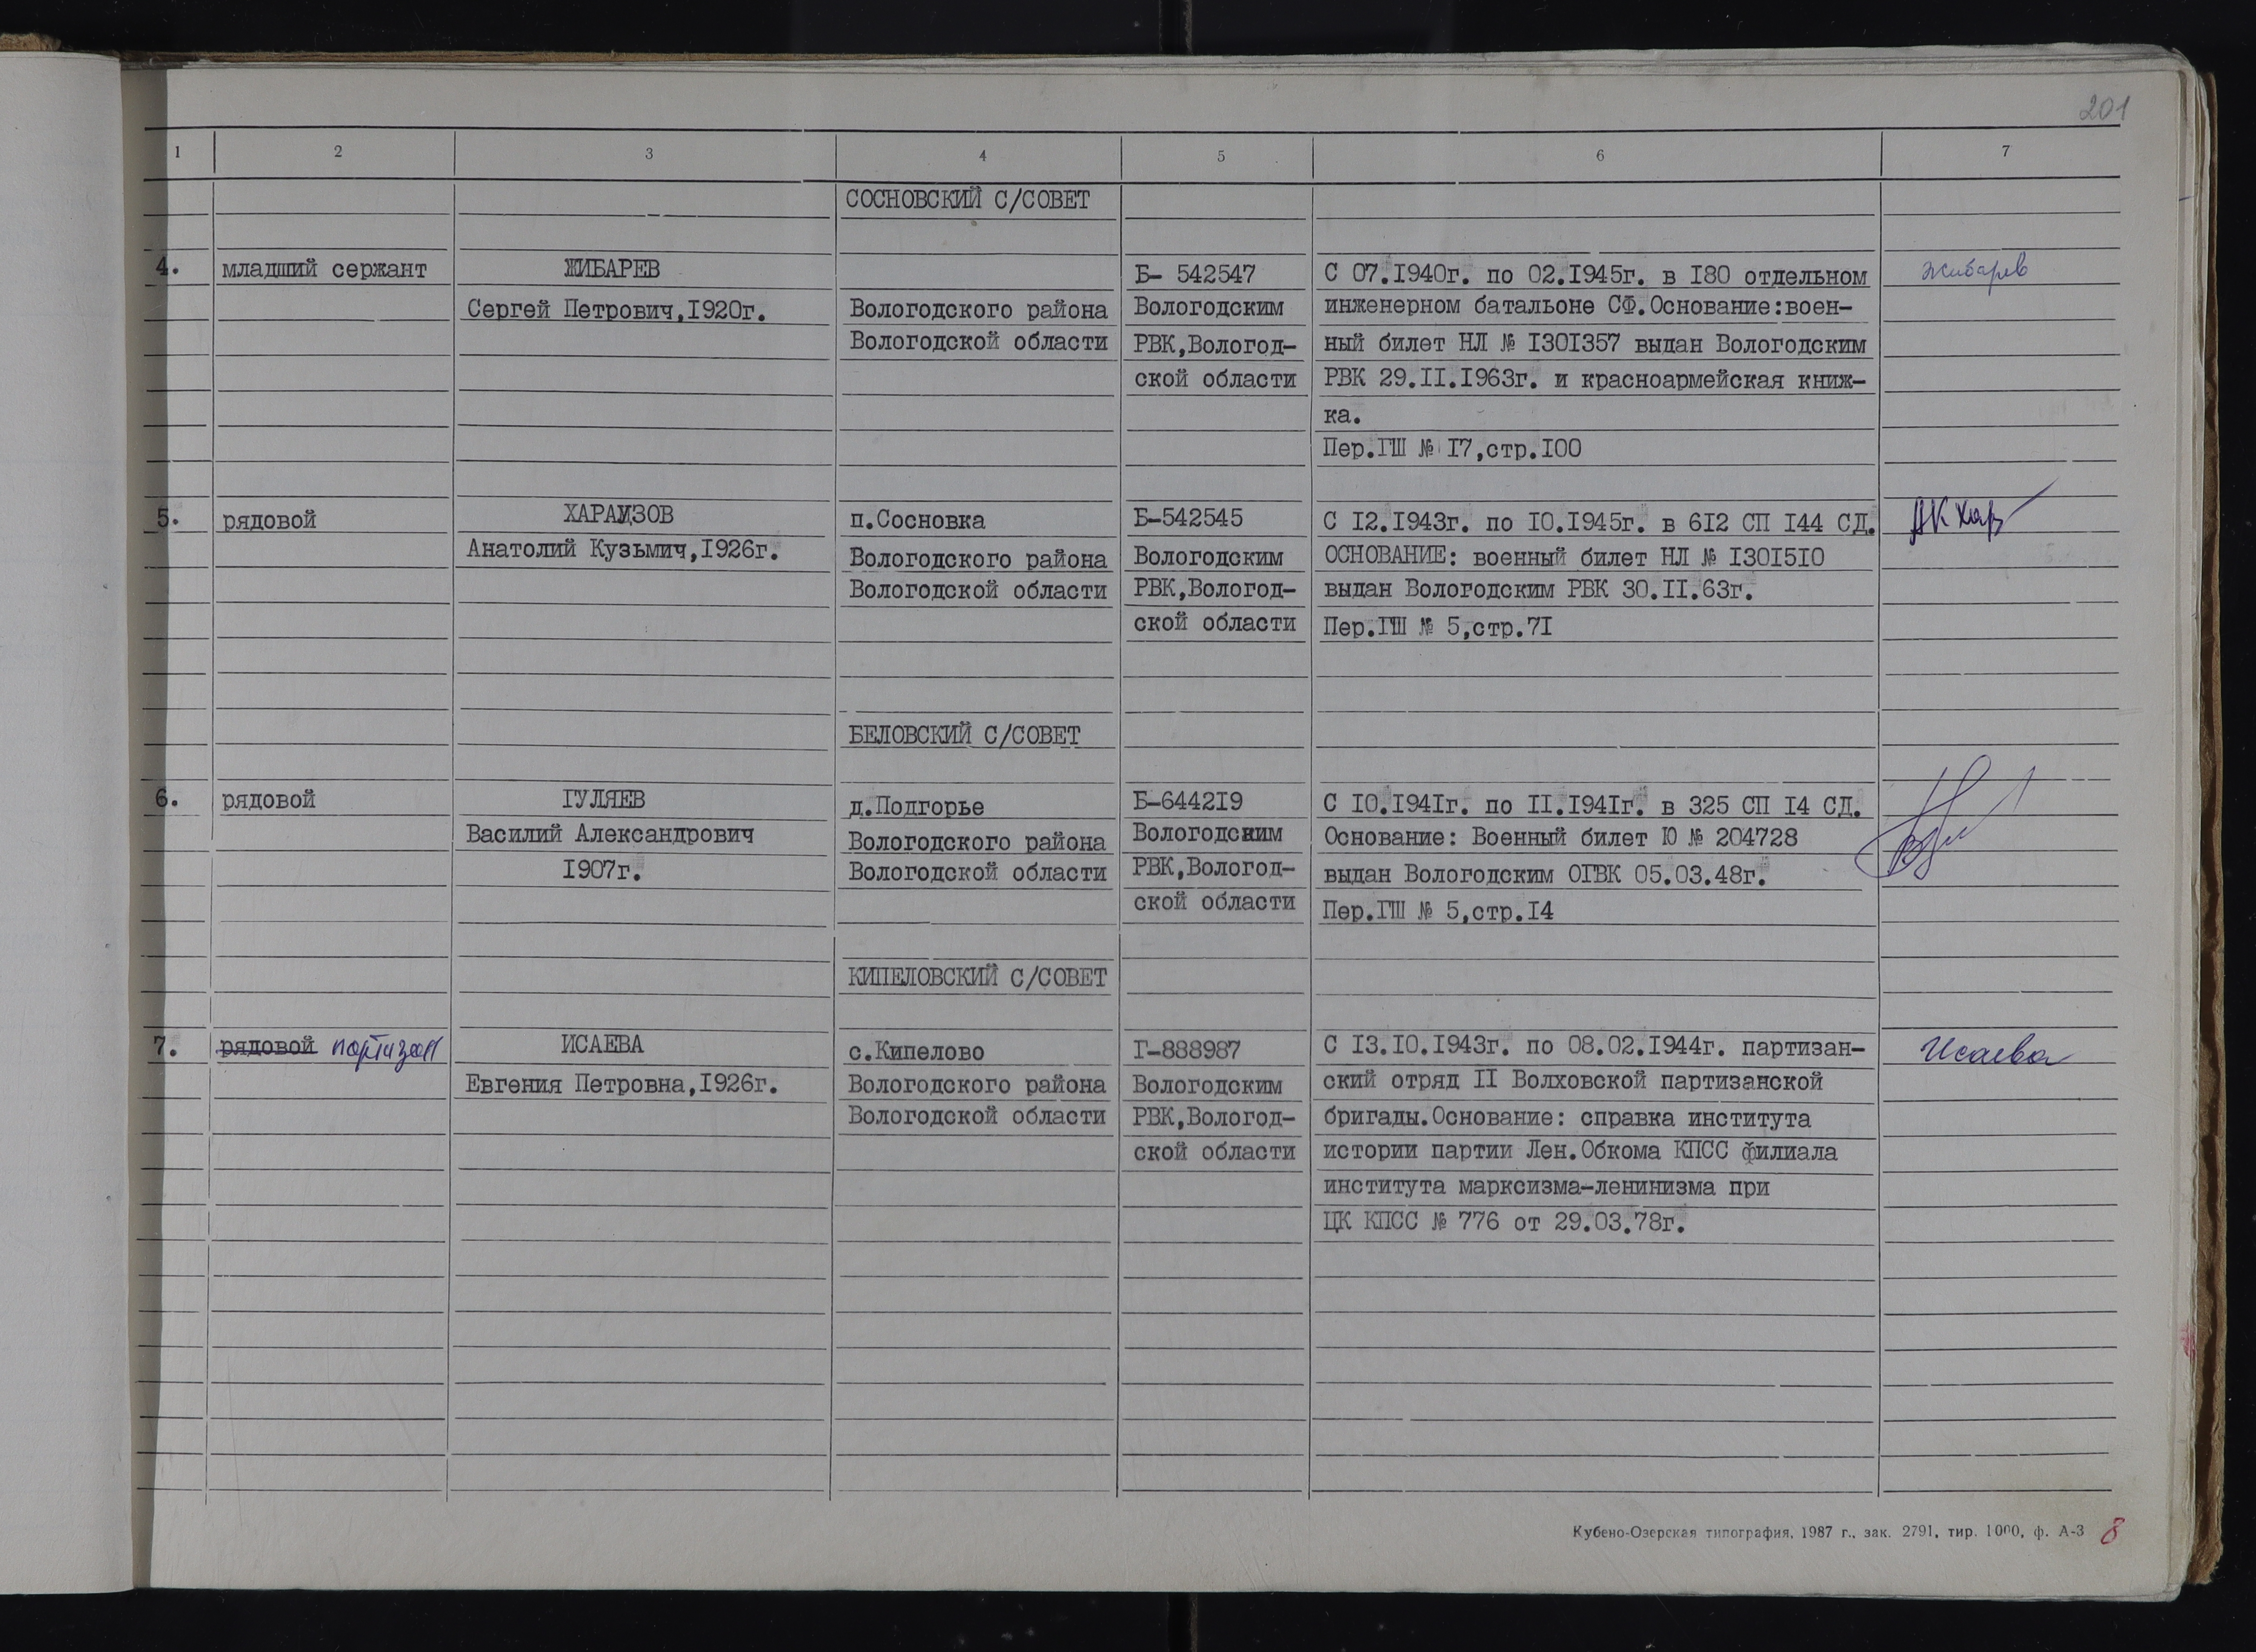 201
1 2 3 4 5 6 7
СОСНОВСКИЙ С/СОВЕТ
4. младший сержант ЖИБАРЕВ Б- 542547 С 07.1940г. по 02.1945г. в 180 отдельном Жибарев
Сергей Петрович,1920г. Вологодского района Вологодским инженерном батальоне СФ.Основание:воен-
Вологодской области РВК,Вологод- ный билет НЛ № 1301357 выдан Вологодским
ской области РВК 29.II.1963г. и красноармейская книж-
ка.
Пер.ГШ № 17,стр.100
5. рядовой п.Сосновка Б-542545 С 12.1943г. по 10.1945г. в 612 СП 144 СД. АК Хар
Анатолий Кузьмич,1926г. Вологодского района Вологодским ОСНОВАНИЕ: военный билет НЛ № 1301510
Вологодской области РВК,Вологод- выдан Вологодским РВК 30.II.63г.
ской области Пер.ГШ № 5,стр.71
БЕЛОВСКИЙ С/СОВЕТ
6. рядовой ГУЛЯЕВ д.Подгорье Б-644219 С 10.1941г. по II.1941г. в 325 СП 14 СД.
Василий Александрович Вологодского района Вологодским Основание: Военный билет Ю № 204728
1907г. Вологодской области РВК,Вологод- выдан Вологодским ОГВК 05.03.48г.
ской области Пер.ГШ № 5,стр.14
КИПЕЛОВСКИЙ С/СОВЕТ
7. рядовой партизан ИСАЕВА с.Кипелово Г-888987 С 13.10.1943г. по 08.02.1944г. партизан- Исаева
Евгения Петровна,1926г. Вологодского района Вологодским ский отряд II Волховской партизанской
Вологодской области РВК,Вологод- бригады.Основание: справка института
ской области истории партии Лен.Обкома КПСС филиала
института марксизма-ленинизма при
ЦК КПСС № 776 от 29.03.78г.
Кубено-Озерская типография, 1987 г., зак. 2791, тир. 1000, ф. А-3 8